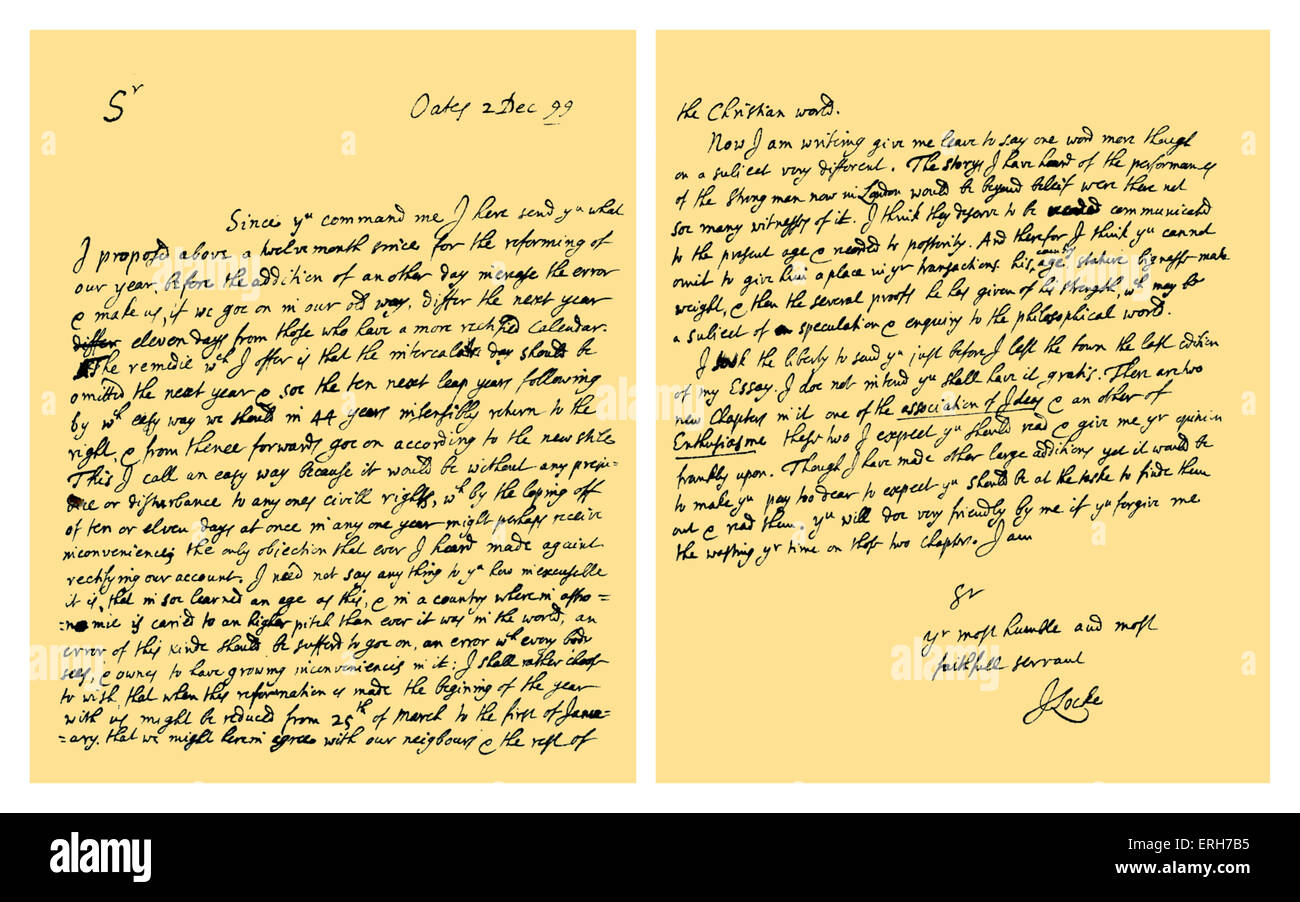 Sr
Oates 2 Dec 99
Since yu command me I here send yu what
I proposed above a twelve month since for the reforming of
our year, before the addition of another day increase the error
& make us, if we goe on in our old way, differ the next year
differ eleven days from those who have a more rectified Calendar.
The remedie wch I offer is that the intercalary day should be
omitted the next year & soe the ten next leap years following
by wch easy way we should in 44 years insensibly return to the
right, & from thence forwards goe on according to the new stile
This I call an easy way because it would be without any preju-
dice or disturbance to any ones civill rights, wch by the loping off
of ten or eleven days at once in any one year might perhaps receive
inconvenience, the only objection that ever I heard made against
rectifying our account. I need not say any thing to yu how inexcusable
it is, that in soe learned an age as this, & in a country where in astro=
=nomie is caried to an higher pitch than ever it was in the world, an
error of this kinde should be sufferd to goe on, an error wch every body
sees, & ownes to have growing inconveniencies in it: I shall rather choose
to wish that when this reformation is made the begining of the year
with us might be reduced from 25th of March to the first of Janu=
=ary. that we might herein agree with our neighbours & the rest of
the Christian world.
Now I am writing give me leave to say one word more though
on a subject very different. The storys I have heard of the performances
of the strong man now in London would be beyond beleif were there not
soe many witnesses of it. I think they deserve to be communicated
to the present age & recorded to posterity. And therefor I think yu cannot
omit to give him a place in yr transactions his country
age stature bigness make
weight, & then the several proofs he has given of his strength, wch may be
a subject of speculation & enquiry to the philosophical world.
I took the liberty to send yu just before I left the town the last edition
of my Essay. I doe not intend yu shall have it gratis. There are two
new Chapters in it one of the association of Ideas & an other of
Enthusiasme these two I expect yu should read & give me yr opinion
frankly upon. Though I have made other large additions yet it would be
to make yu pay too dear to expect yu should be at the taske to finde them
out & read them, yu will doe very friendly by me if yu forgive me
the wasting yr time on those two chapters. I am
Sr
yr most humble and most
faithfull servant
J Locke
alamy
a
alamy
ERH7B5
www.alamy.com